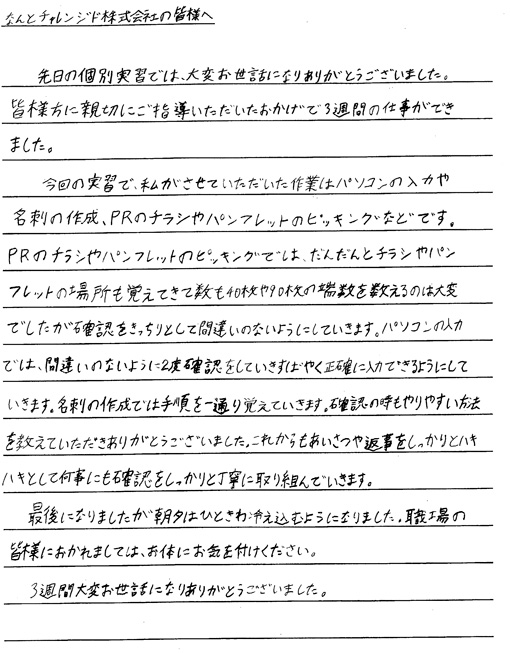 なんとチャレンジド株式会社の皆様へ
先日の個別実習では、大変お世話になりありがとうございました。
皆様方に親切にご指導いただいたおかげで3週間の仕事ができ
ました。
今回の実習で、私がさせていただいた作業はパソコンの入力や
名刺の作成、PRのチラシやパンフレットのピッキングなどです。
PRのチラシやパンフレットのピッキングでは、だんだんとチラシやパン
フレットの場所も覚えてきて数も40枚や90枚の端数を数えるのは大変
でしたが確認をきっちりとして間違いのないようにしていきます。パソコンの入力
では、間違いのないように2度確認をしていきすばやく正確に入力できるようにして
いきます。名刺の作成では手順を一通り覚えていきます。確認の時もやりやすい方法
を教えていただきありがとうございました。これからもあいさつや返事をしっかりとハキ
ハキとして何事にも確認をしっかりと丁寧に取り組んでいきます。
最後になりましたが朝夕はひときわ冷え込むようになりました。職場の
皆様におかれましては、お体にお気を付けください。
3週間大変お世話になりありがとうございました。